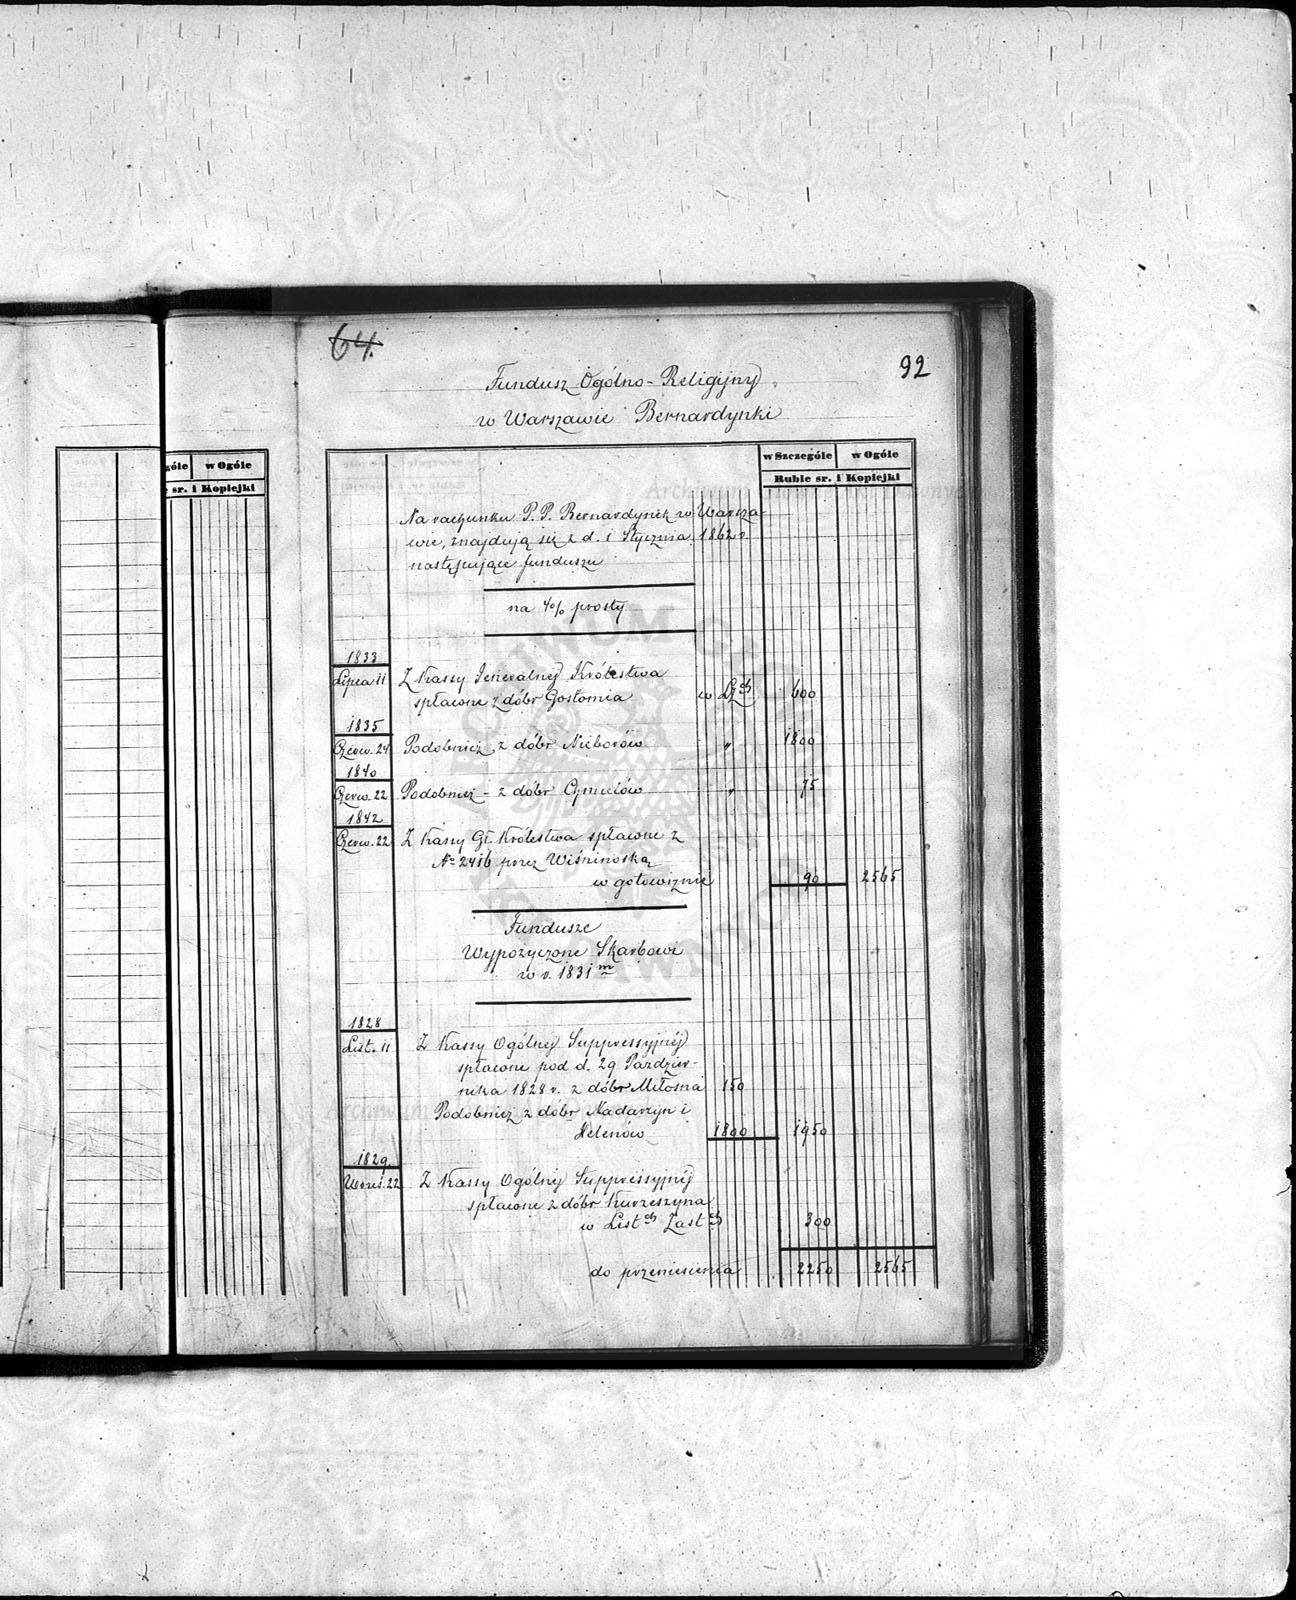 64.
92
Fundusz Ogólno-Religijny
w Warszawie Bernardynki
góle w Ogóle
sr. i Kopiejki
w Szczególe w Ogóle
Ruble sr. i Kopiejki
Na rachunku P.P. Bernardynek w Warsza-
wie, znajdują się z d. 1 Stycznia 1862 r.
następujące fundusze
na 4% prosty
1833
Lipca 11 Z Kassy Jeneralnej Królestwa
spłacone z dóbr Gostomia w Lz.ch 600
1835
Czerw. 24 Podobnież z dóbr Nieborów " 1800
1840
Czerw. 22 Podobnież - z dóbr Cmielów " 75
1842
Czerw. 22 Z Kassy Gł. Królestwa spłacone z
No 2416 przez
w gotowiznie 90 2565
Fundusze
Wypożyczone Skarbowi
w r. 1831 m
1828
List. 11 Z Kassy Ogólnej Suppressyjnej
spłacone pod d. 29 Paździer-
nika 1828 r. z dóbr Miłosna 150
Podobnież z dóbr Nadarzyn i
Helenów 1800 1950
1829.
Wrześ. 22 Z Kassy Ogólnej Suppressyjnej
spłacone z dóbr Kurzeszyna
w List.ch Zast.ch 300
do przeniesienia 2250 2565